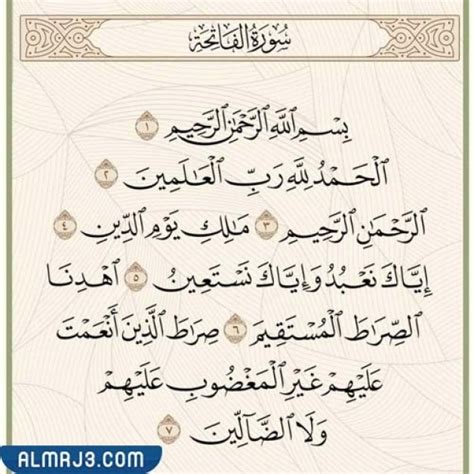 سُورَةُ الْفَاتِحَةِ
بِسْمِ ٱللَّهِ ٱلرَّحْمَٰنِ ٱلرَّحِيمِ ١
ٱلْحَمْدُ لِلَّهِ رَبِّ ٱلْعَٰلَمِينَ ٢
ٱلرَّحْمَٰنِ ٱلرَّحِيمِ ٣ مَٰلِكِ يَوْمِ ٱلدِّينِ ٤
إِيَّاكَ نَعْبُدُ وَإِيَّاكَ نَسْتَعِينُ ٥ ٱهْدِنَا
ٱلصِّرَٰطَ ٱلْمُسْتَقِيمَ ٦ صِرَٰطَ ٱلَّذِينَ أَنْعَمْتَ
عَلَيْهِمْ غَيْرِ ٱلْمَغْضُوبِ عَلَيْهِمْ
وَلَا ٱلضَّآلِّينَ ٧
ALMRJ3.COM